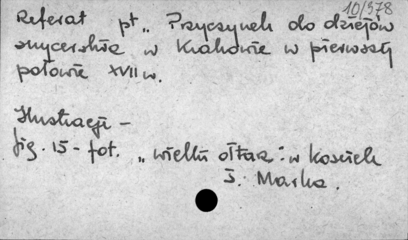 10/578
Referat pt „ Przyczynek do dziejów
snycerstwa w Krakowie w pierwszej
połowie XVII w.
Ilustracje -
fig. 15 - fot. „ wielki ołtarz " w Kościele
Ś. Marka.